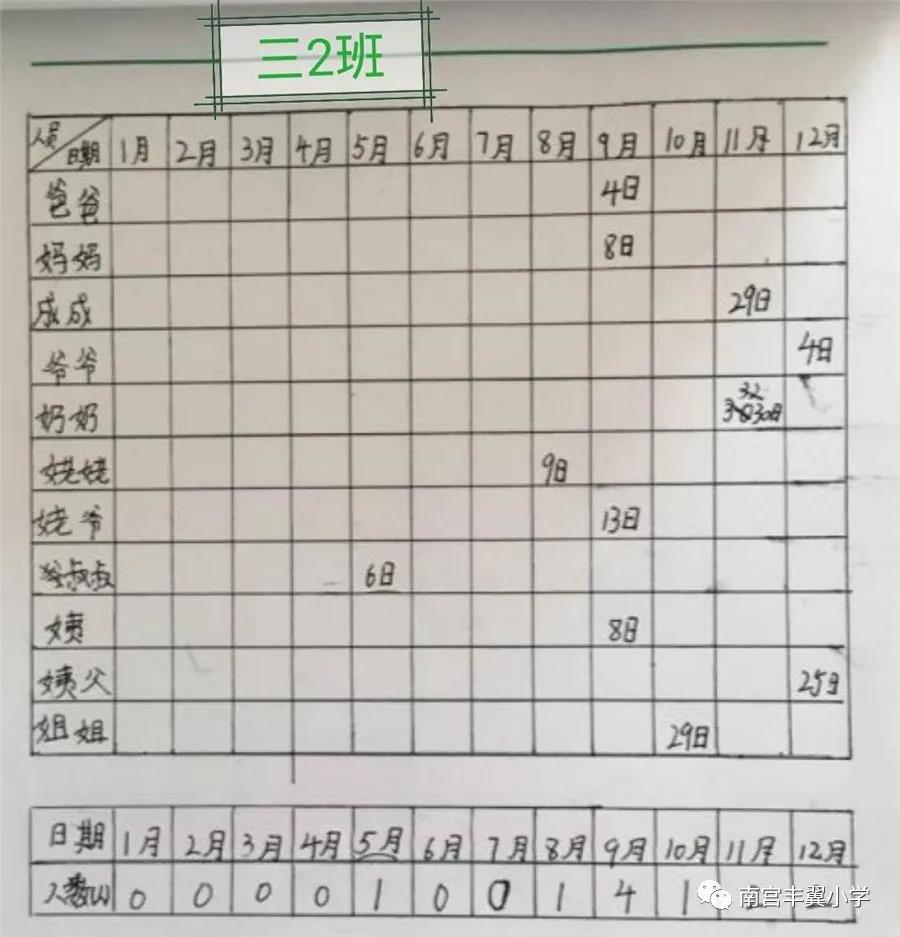 三2班
人员 日期 1月 2月 3月 4月 5月 6月 7月 8月 9月 10月 11月 12月
爸爸 4日
妈妈 8日
成成 29日
爷爷 4日
奶奶 30日
姥姥 9日
姥爷 13日
叔叔 6日
姨 8日
姨父 25日
姐姐 29日
日期 1月 2月 3月 4月 5月 6月 7月 8月 9月 10月 11月 12月
人数 0 0 0 0 1 0 0 1 4 1
南宫丰翼小学